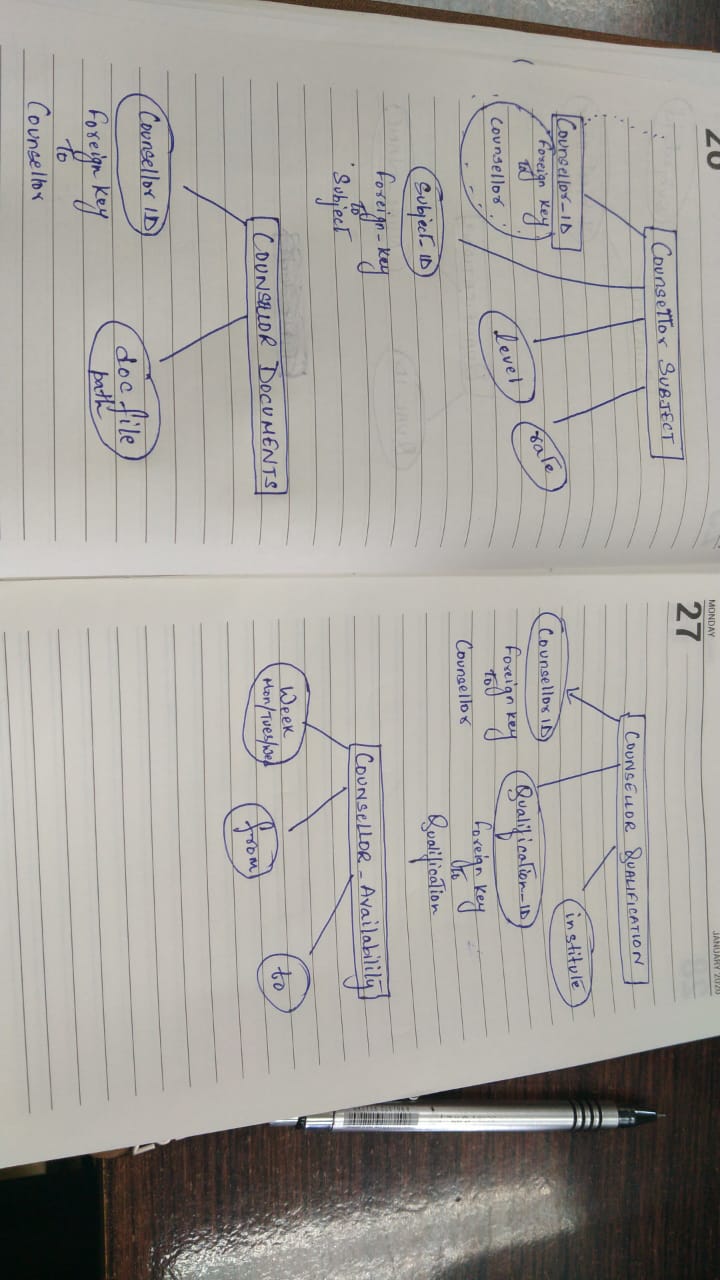 26
Counsellor SUBJECT
Counsellor-ID
Foreign Key
to
Counsellor
level
rate
Subject-ID
Foreign-key
to
Subject
COUNSELLOR DOCUMENTS
Counsellor ID
Foreign Key
To
Counsellor
doc file
path
MONDAY
27
JANUARY 2020
COUNSELLOR QUALIFICATION
Counsellor ID
Foreign key
To
Counsellor
Qualification-ID
Foreign Key
To
Qualification
institute
COUNSELLOR-Availability
Week
Mon/Tues/Wed
from
to